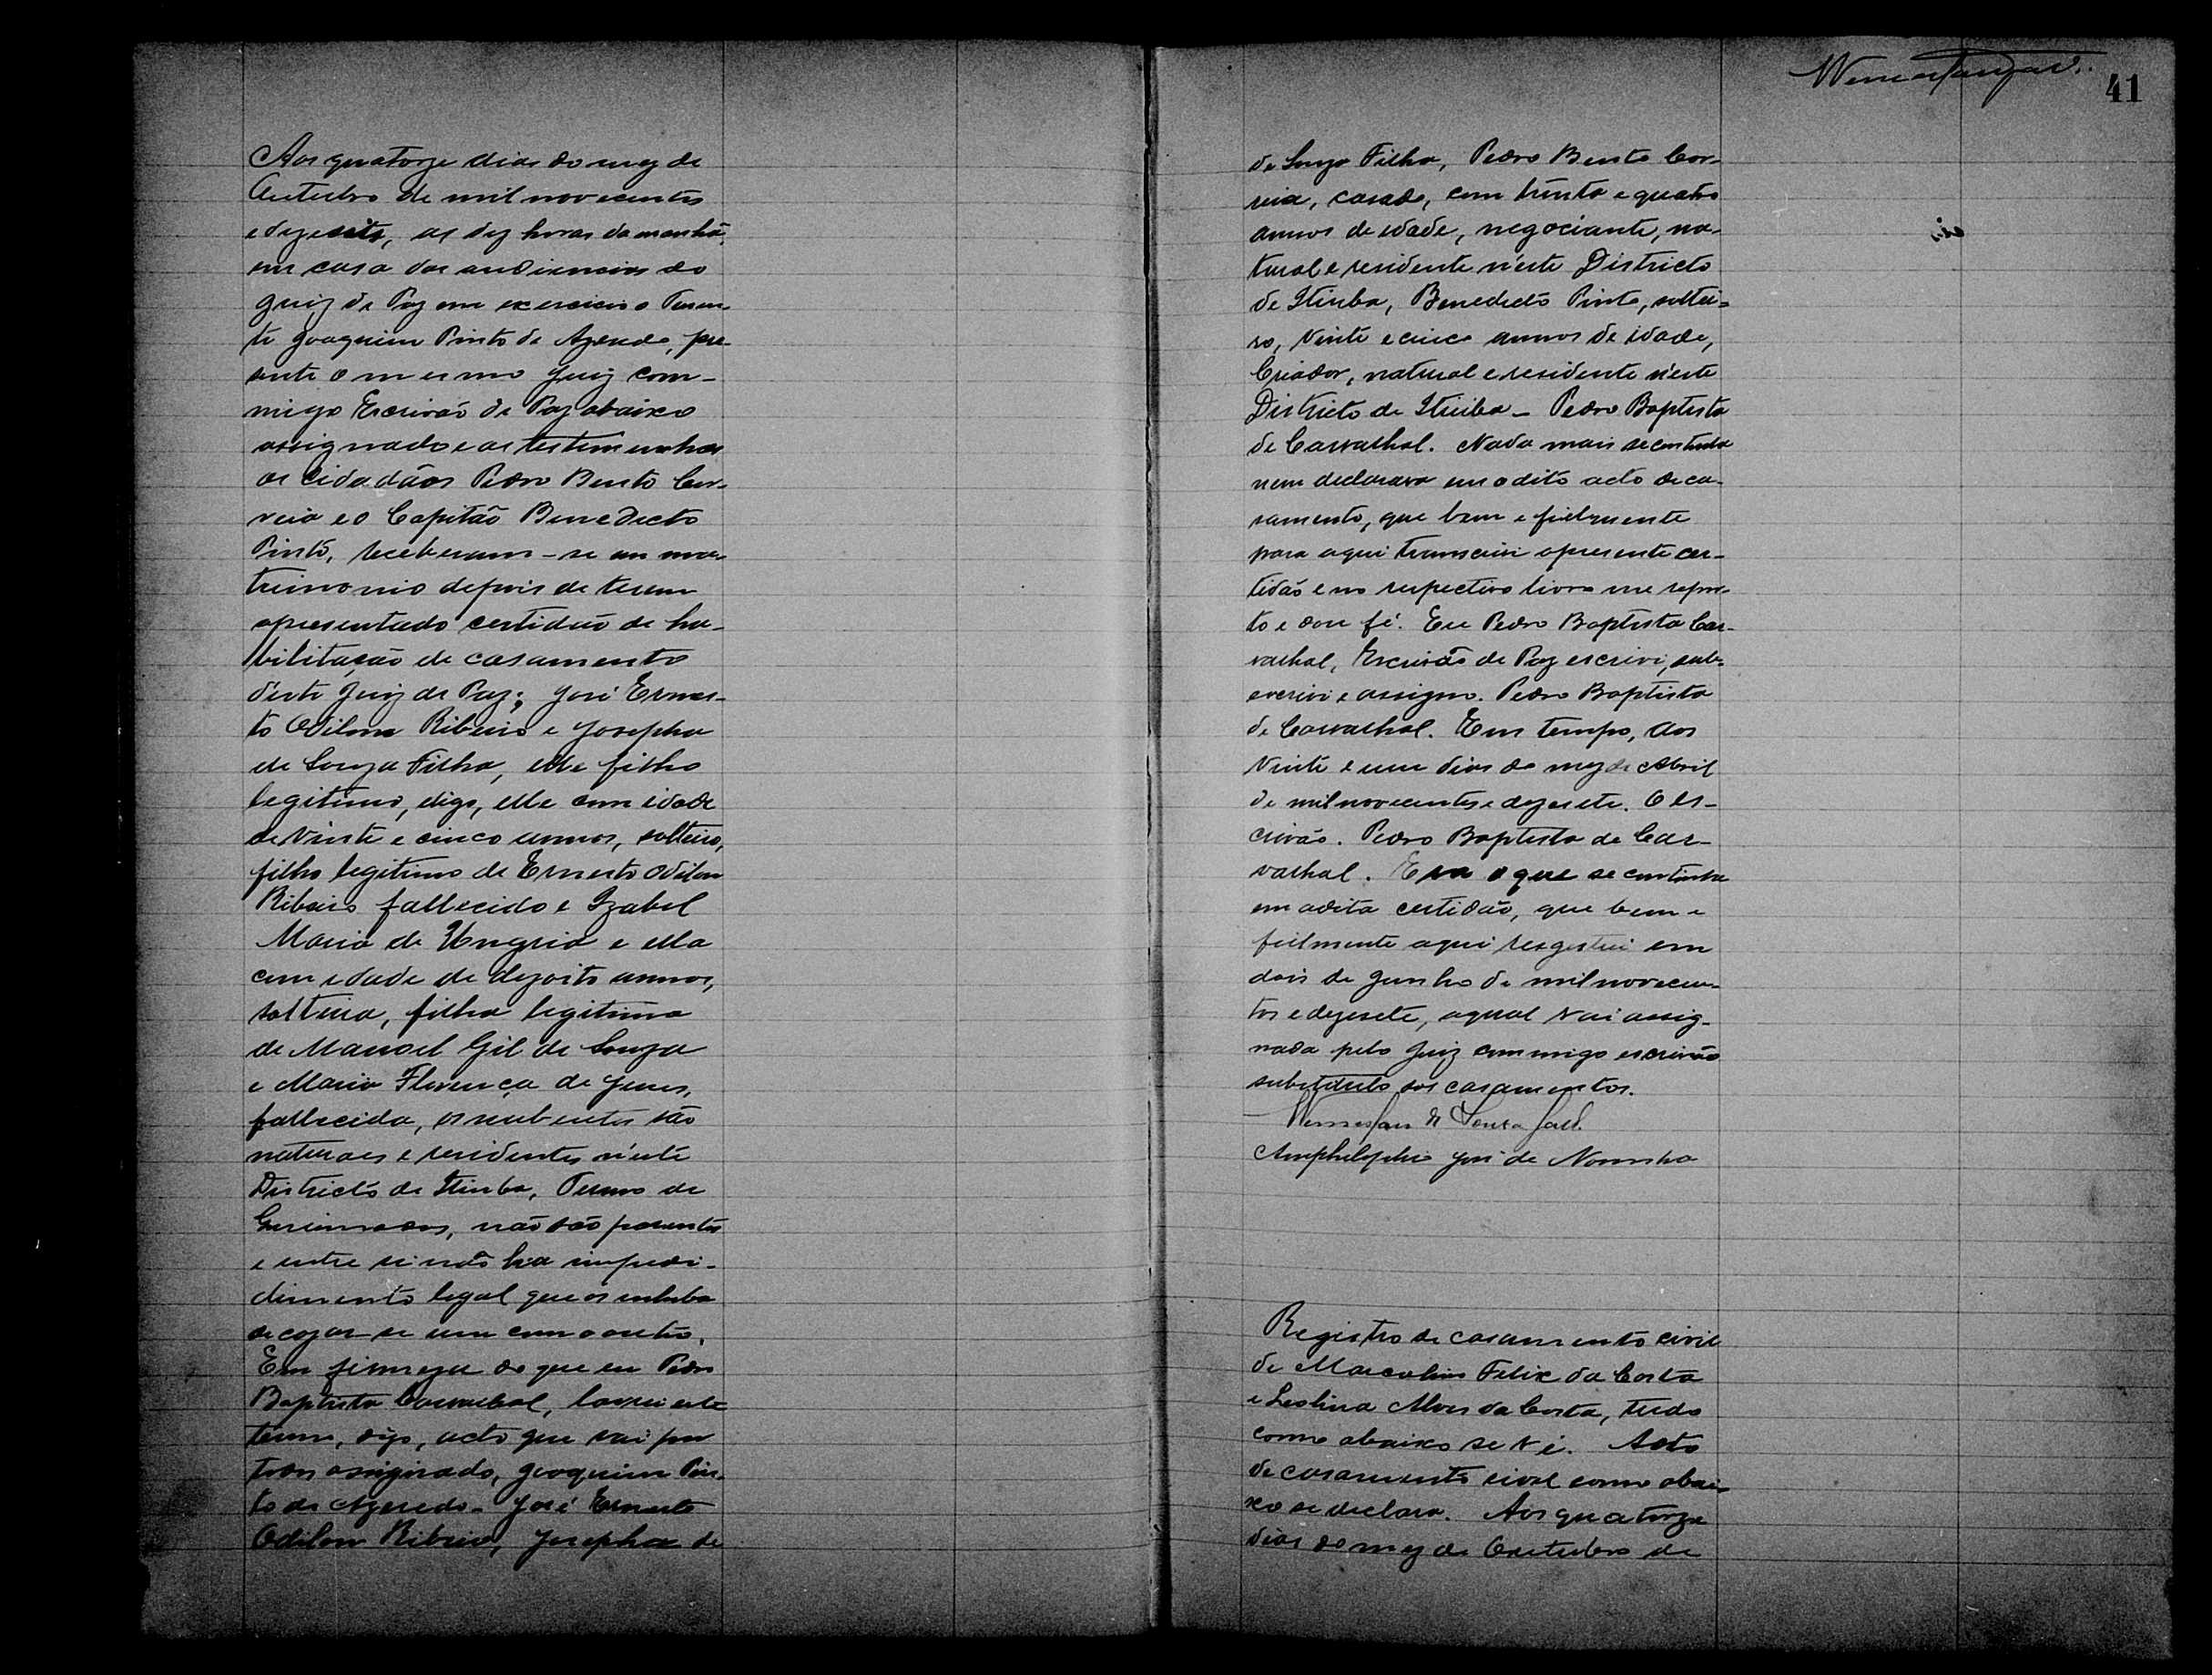 Aos quatorze dias do mez de
Outubro de mil novecentos
e dezeseis, as dez horas da manhã,
em casa das audiencias do
Juiz de Paz em exercicio o Tenen-
te Joaquim Pinto de Azeredo, pre-
sente o mesmo Juiz com-
migo Escrivão de Paz abaixo
assignado e as testemunhas
os Cidadãos Pedro Bento Cor-
reia e o Capitão Benedicto
Pinto, receberam-se em ma-
trimonio depois de terem
apresentado certidão de ha-
bilitação de casamento
deste Juiz de Paz; José Ernes-
to Odilon Ribeiro e Josepha
de Souza Filha, elle filho
legitimo, digo, elle com idade
de vinte e cinco annos, solteiro,
filho legitimo de Ernesto Odilon
Ribeiro fallecido e Izabel
Maria de e ella
com edade de dezoito annos,
solteira, filha legitima
de Manoel Gil de Souza
e Maria Florença de Jesus,
fallecida, os nubentes são
naturaes e residentes n'este
Districto de Itiuba, Termo de
não são parentes
e entre si não ha impedi-
dimento legal que os inhiba
de cazar-se um com o outro.
Em firmeza do que eu Pedro
Baptista Carvalhal, lavrei este
termo, digo, acto que vai por
todos assignado, Joaquim Pin-
to de Azeredo - José Ernesto
Odilon Ribeiro, Josepha de
41
de Souza Filha, Pedro Bento Cor-
reia, casado, com trinta e quatro
annos de idade, negociante, na-
tural e residente n'este Districto
de Itiuba, Benedicto Pinto, soltei-
ro, vinte e cinco annos de idade,
Criador, natural e residente n'este
Districto de Itiuba - Pedro Baptista
de Carvalhal. Nada mais se continha
nem declarava em o dito acto de ca-
samento, que bem e fielmente
para aqui transcrivi apresente cer-
tidão e no respectivo livro me repor-
to e dou fé. Eu Pedro Baptista Car-
valhal, Escrivão de Paz escrivi, sub-
escrivi e assigno. Pedro Baptista
de Carvalhal. Em tempo, Aos
vinte e um dias do mez de Abril
de mil novecentos e dezesete. O es-
crivão. Pedro Baptista de Car-
valhal. Era o que se continha
em adita certidão, que bem e
fielmente aqui resgestrei em
dois de Junho de mil novecen-
tos e dezesete, aqual vai assig-
nada pelo Juiz commigo escrivão
substituto dos casamentos.
de Souza
Amphilophio José de Noronha
Registro de casamento civil
de Marcolino Felix da Costa
e Leolina Alves da Costa, tudo
como abaixo se vê. Acto
de casamento civil como abai-
xo se declara. Aos quatorze
dias do mez de Outubro de